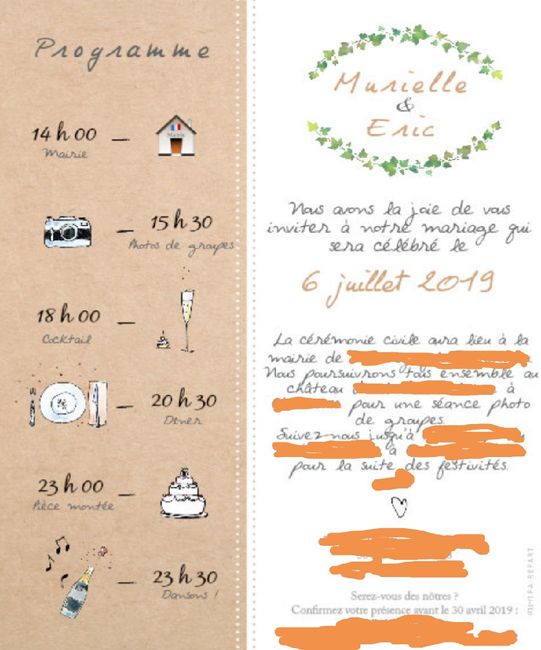 Programme
14 h 00
Mairie
Mairie
15 h 30
Photos de groupes
18 h 00
Cocktail
20 h 30
Dîner
23 h 00
Pièce montée
23 h 30
Dansons !
Murielle
&
Eric
Nous avons la joie de vous
inviter à notre mariage qui
sera célébré le
6 juillet 2019
La cérémonie civile aura lieu à la
mairie de
Nous poursuivrons tous ensemble au
château à
pour une séance photo
de groupes.
Suivez-nous jusqu'à
à
pour la suite des festivités.
Serez-vous des nôtres ?
Confirmez votre présence avant le 30 avril 2019 :